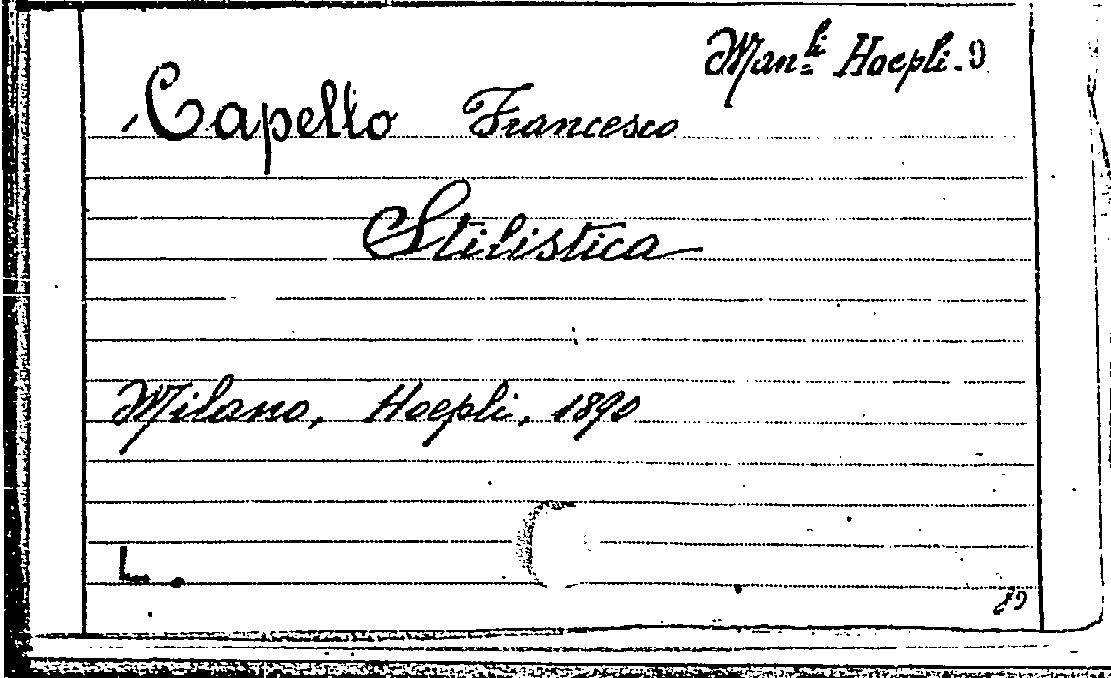 Man.li Hoepli. 9
Capello Francesco
Stilistica
Milano, Hoepli, 1890
L.